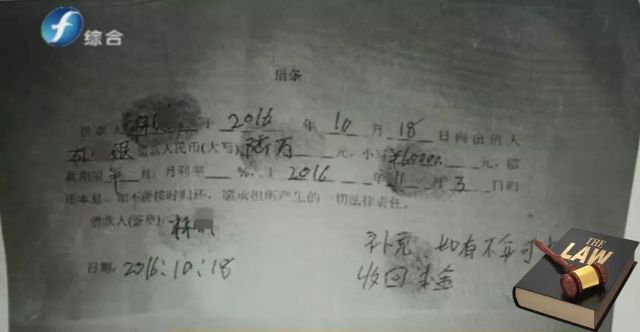 综合
借条
借款人 于 2016 年 10 月 18 日向出借人
借款人民币(大写) 陆万 元, 小写 ¥60000. 元, 借
款期限 半 月, 月利率 %. 于 2016 年 11 月 5 日归
还本息。如不能按时归还,愿承担所产生的一切法律责任。
借款人(签章) 林
日期: 2016:10:18
补充、如有不实可
收回本金
THE
LAW